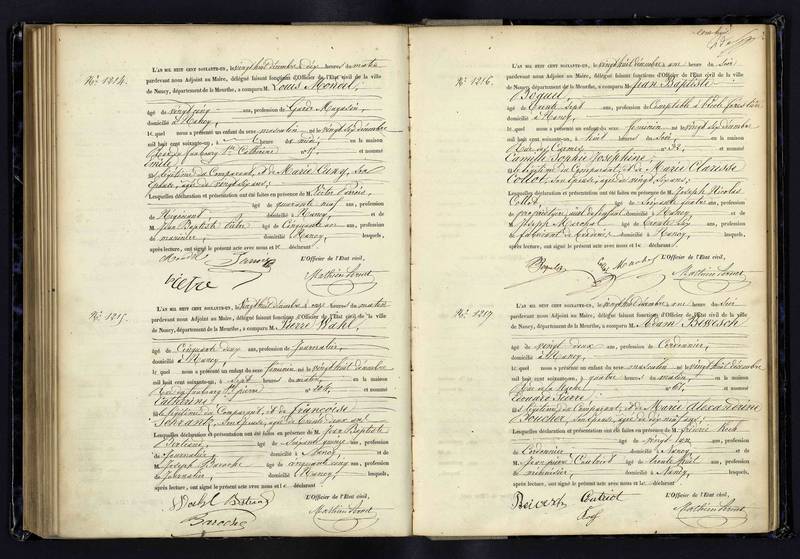 No. 1214.
L'AN MIL HUIT CENT SOIXANTE-UN, le vingt huit décembre à dix heures du matin
pardevant nous Adjoint au Maire, délégué faisant fonctions d'Officier de l'Etat civil de la ville
de Nancy, département de la Meurthe, a comparu M. Louis
âgé de vingt ans, profession de Garde Magasin,
domicilié à Nancy,
lequel nous a présenté un enfant du sexe masculin né le vingt sept décembre
mil huit cent soixante-un, à heure de midi, en la maison
faubourg Ste Catherine No. et nommé
Emile,
fils légitime du Comparant, et de Marie son
épouse, âgée de vingt six ans;
Lesquelles déclaration et présentation ont été faites en présence de M. Victor
âgé de quarante neuf ans, profession
de Négociant, domicilié à Nancy, et de
M. Jean Baptiste âgé de Cinquante ans, profession
de menuisier, domicilié à Nancy, lesquels,
après lecture, ont signé le présent acte avec nous et le déclarant
L'Officier de l'Etat civil,
Mathieu
No. 1215.
L'AN MIL HUIT CENT SOIXANTE-UN, le vingt huit décembre à onze heures du matin
pardevant nous Adjoint au Maire, délégué faisant fonctions d'Officier de l'Etat civil de la ville
de Nancy, département de la Meurthe, a comparu M. Pierre Wahl,
âgé de Cinquante deux ans, profession de Journalier,
domicilié à Nancy,
lequel nous a présenté un enfant du sexe féminin né le vingt huit décembre
mil huit cent soixante-un, à sept heures du matin, en la maison
faubourg St pierre No. et nommé
Catherine,
fille légitime du Comparant, et de Françoise
Schrantz, son épouse, âgée de trente deux ans;
Lesquelles déclaration et présentation ont été faites en présence de M. Jean Baptiste
Bertrand, âgé de Soixante quinze ans, profession
de Journalier, domicilié à Nancy, et de
M. Joseph Baroche âgé de cinquante cinq ans, profession
de Journalier, domicilié à Nancy, lesquels,
après lecture, ont signé le présent acte avec nous et le déclarant
Wahl Bertrand L'Officier de l'Etat civil,
Baroche Mathieu
No. 1216.
L'AN MIL HUIT CENT SOIXANTE-UN, le vingt huit décembre à une heure du Soir
pardevant nous Adjoint au Maire, délégué faisant fonctions d'Officier de l'Etat civil de la ville
de Nancy, département de la Meurthe, a comparu M. Jean Baptiste
âgé de trente sept ans, profession de Comptable à l'école forestière
domicilié à Nancy,
lequel nous a présenté un enfant du sexe féminin né le vingt sept décembre
mil huit cent soixante-un, à huit heures du Soir, en la maison
Rue des Carmes No. 32, et nommé
Camille Sophie Joséphine,
fille légitime du Comparant, et de Marie Clarisse
Collot, son épouse, âgée de vingt six ans;
Lesquelles déclaration et présentation ont été faites en présence de M. Joseph Nicolas
Collot, âgé de Soixante quatre ans, profession
de propriétaire, domicilié à Nancy et de
M. Joseph Marchal âgé de trente six ans, profession
de fabricant de domicilié à Nancy, lesquels,
après lecture, ont signé le présent acte avec nous et le déclarant
L'Officier de l'Etat civil,
Mathieu
No. 1217
L'AN MIL HUIT CENT SOIXANTE-UN, le vingt huit décembre à une heure du Soir
pardevant nous Adjoint au Maire, délégué faisant fonctions d'Officier de l'Etat civil de la ville
de Nancy, département de la Meurthe, a comparu M. Adam
âgé de vingt deux ans, profession de Cordonnier,
domicilié à Nancy,
lequel nous a présenté un enfant du sexe masculin né le vingt huit décembre
mil huit cent soixante-un, à quatre heures du matin, en la maison
Rue de la No. 61, et nommé
Edouard Pierre,
fils légitime du Comparant, et de Marie Alexandrine
son épouse, âgée de dix neuf ans;
Lesquelles déclaration et présentation ont été faites en présence de M. frédéric
âgé de vingt un ans, profession
de Cordonnier, domicilié à Nancy et de
M. Jean pierre âgé de trente huit ans, profession
de menuisier, domicilié à Nancy, lesquels,
après lecture, ont signé le présent acte avec nous et le déclarant
L'Officier de l'Etat civil,
Mathieu